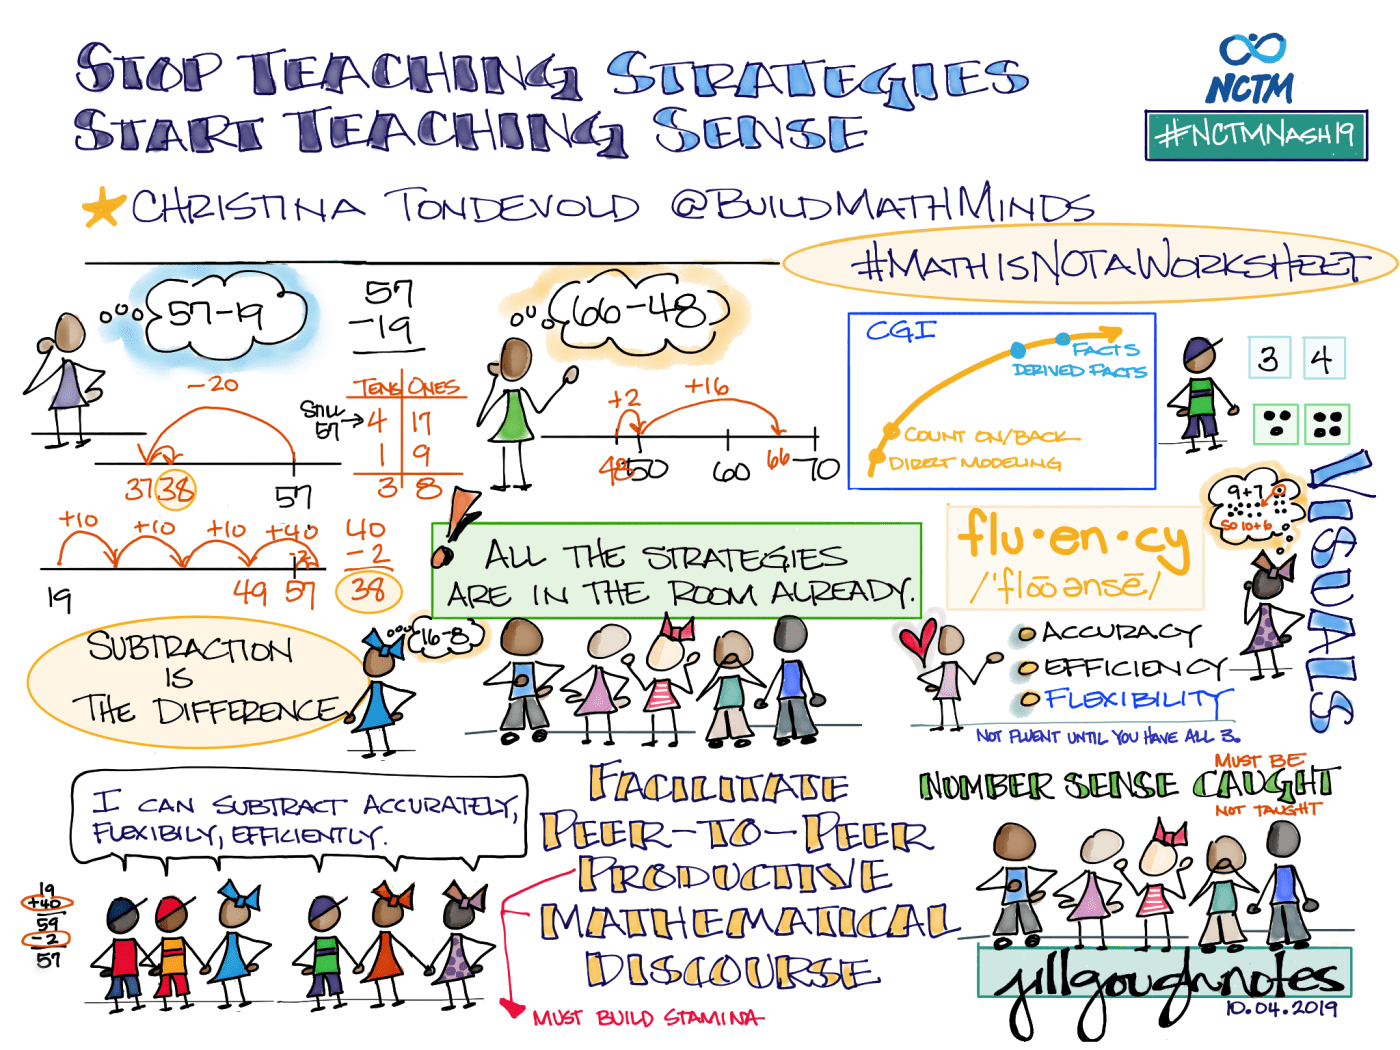 STOP TEACHING STRATEGIES
START TEACHING SENSE
NCTM
#NCTMNASH19
CHRISTINA TONDEVOLD @BUILDMATHMINDS
#MATHISNOTAWORKSHEET
57-19
57
-19
-20
37 38 57
STILL
57
TENS ONES
4 17
1 9
3 8
66-48
+2 +16
48 50 60 66 70
CGI
FACTS
DERIVED FACTS
COUNT ON/BACK
DIRECT MODELING
3 4
+10 +10 +10 +40
-2
19 49 57
40
-2
38
! ALL THE STRATEGIES
ARE IN THE ROOM ALREADY.
flu·en·cy
/'flōōənsē/
ACCURACY
EFFICIENCY
FLEXIBILITY
NOT FLUENT UNTIL YOU HAVE ALL 3.
9+7
SO 10+6
VISUALS
SUBTRACTION
IS
THE DIFFERENCE
16-8
I CAN SUBTRACT ACCURATELY,
FLEXIBILY, EFFICIENTLY.
19
+40
59
-2
57
FACILITATE
PEER-TO-PEER
PRODUCTIVE
MATHEMATICAL
DISCOURSE
MUST BUILD STAMINA
MUST BE
NUMBER SENSE CAUGHT
NOT TAUGHT
jillgoughnotes
10.04.2019